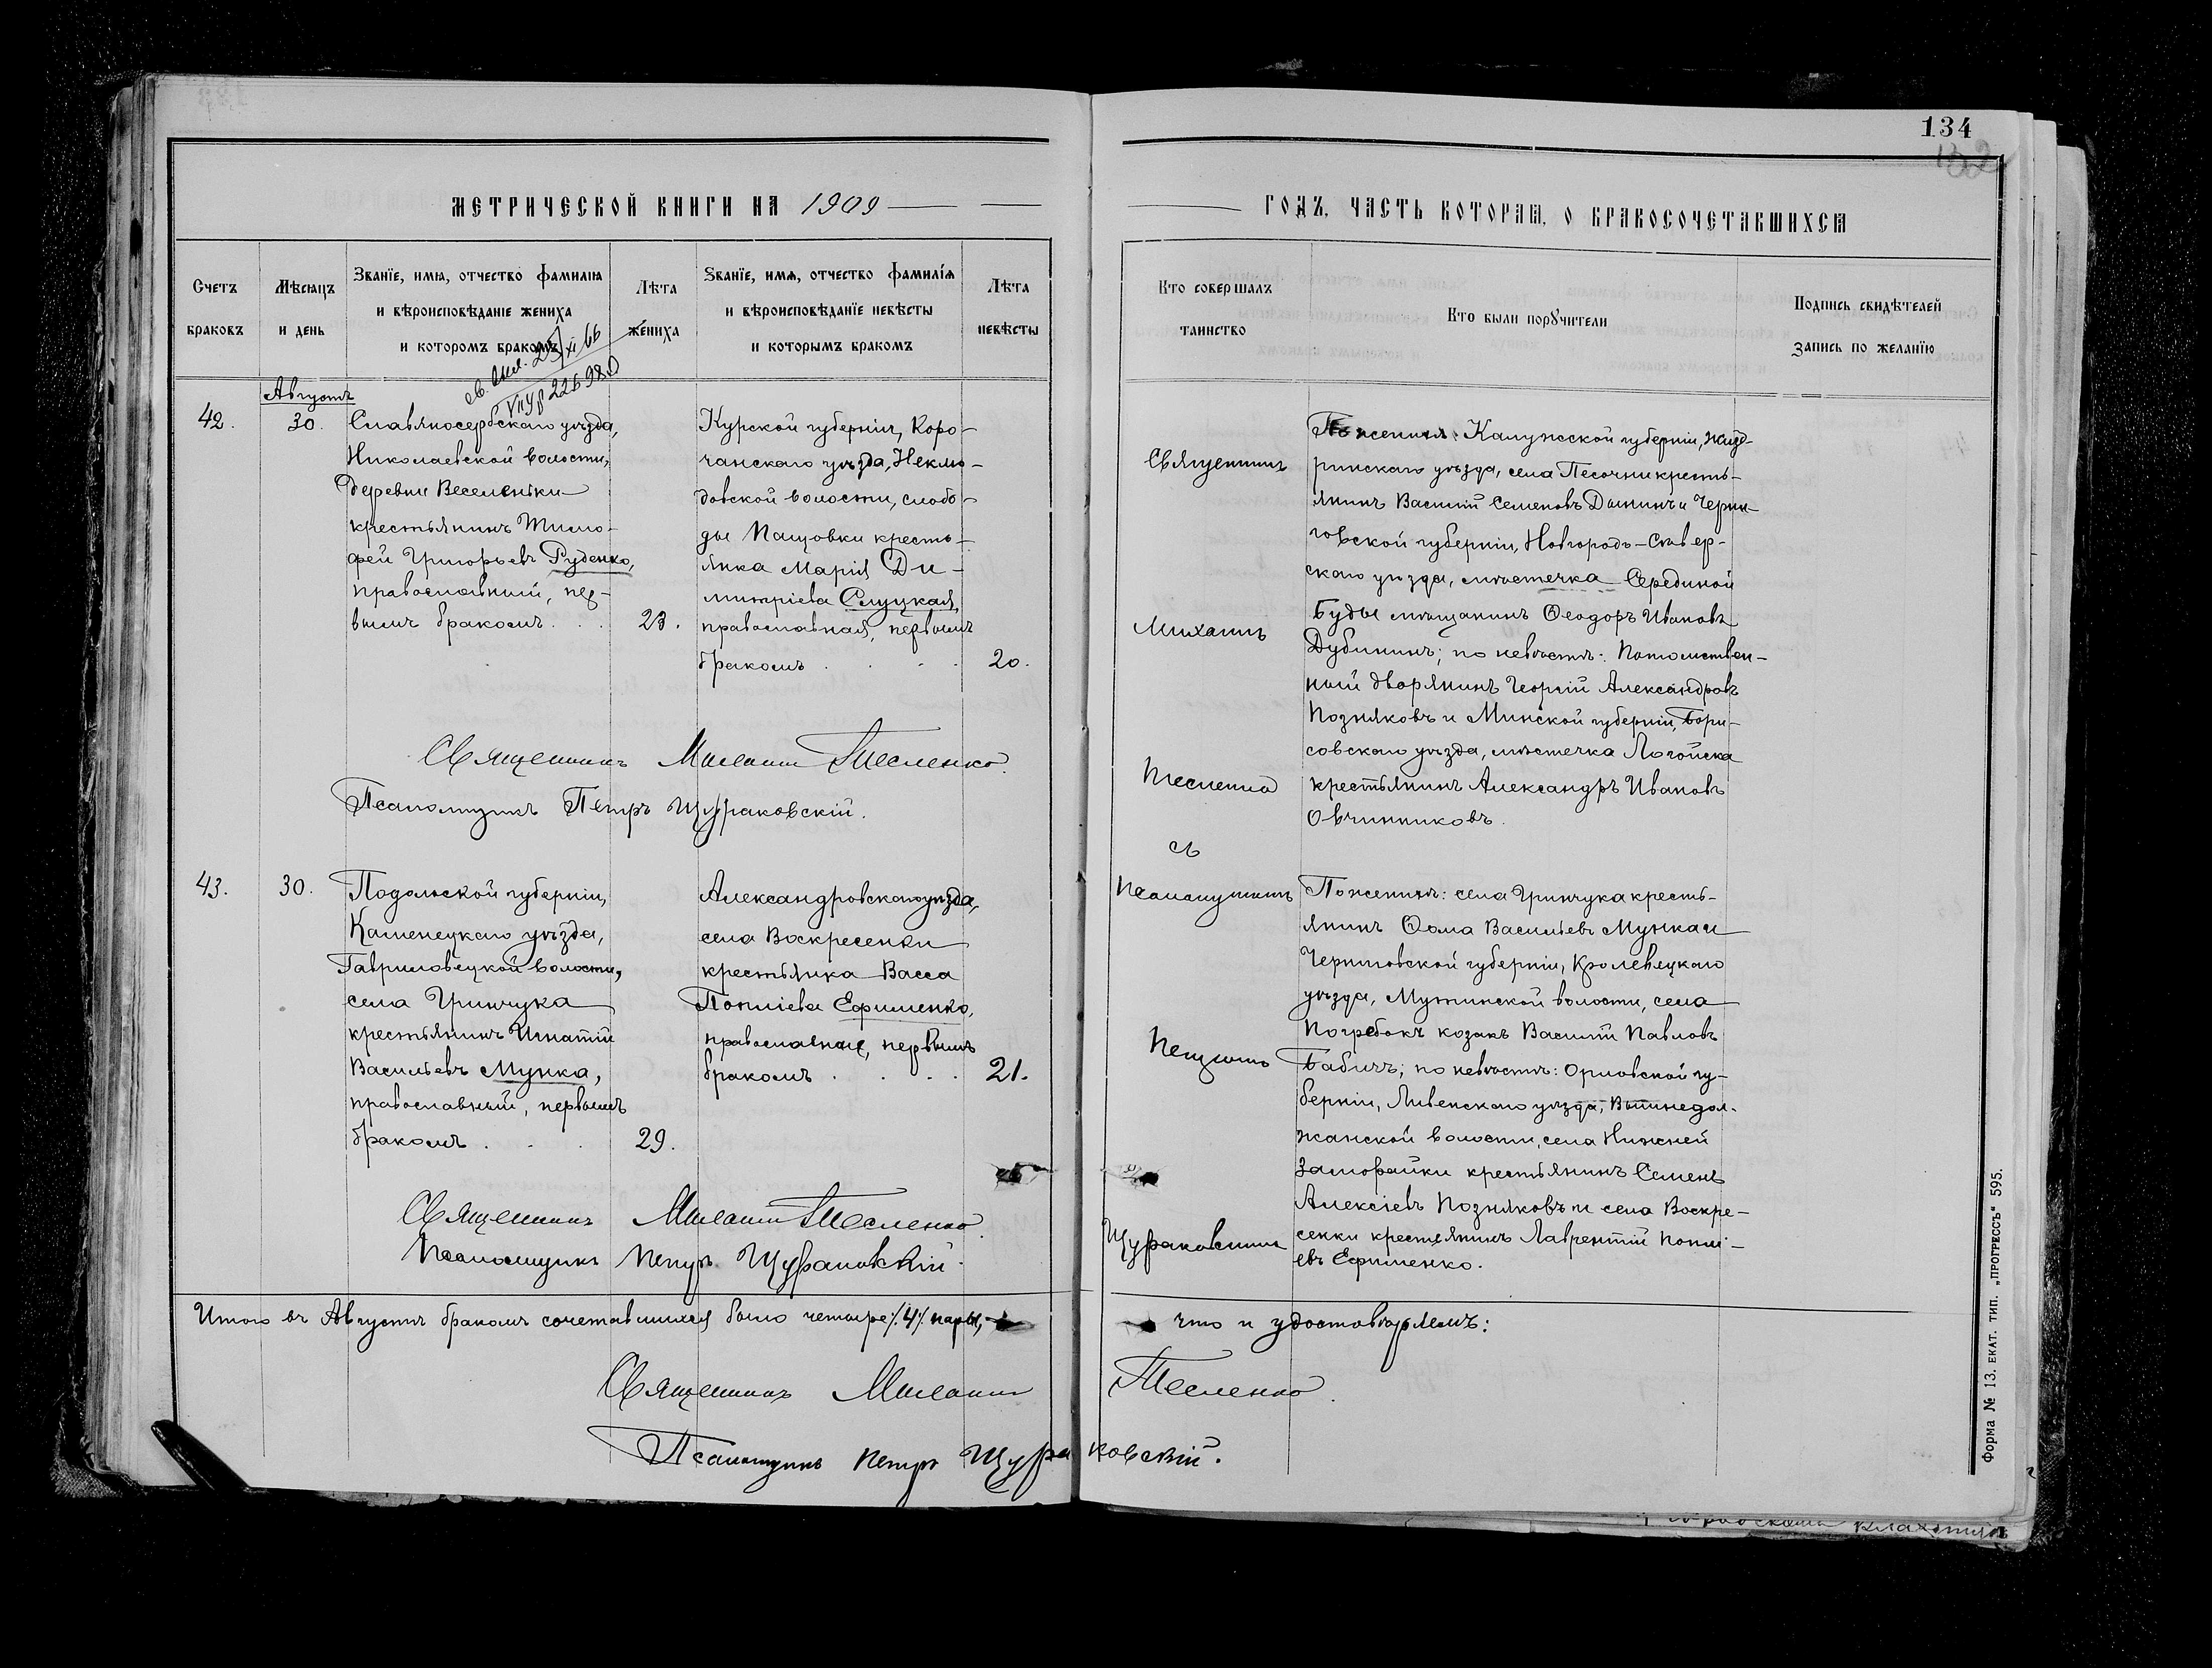 134
МЕТРИЧЕСКОЙ КНИГИ НА 1909
ГОДЪ, ЧАСТЬ ВТОРАЯ, О БРАКОСОЧЕТАВШИХСЯ
Счетъ
браковъ
Мѣсяцъ
и день
Званіе, имя, отчество фамилія
и вѣроисповѣданіе жениха
и которомъ бракомъ
Лѣта
жениха
Званіе, имя, отчество фамилія
и вѣроисповѣданіе невѣсты
и которымъ бракомъ
Лѣта
невѣсты
Кто совершалъ
таинство
Кто были поручители
Подпись свидѣтелей
запись по желанію
Августъ
42.
30.
Славяносербскаго уѣзда,
Николаевской волости,
деревни Веселеньки
крестьянинъ Тимо-
фей Григорьевъ Руденко,
православный, пер-
вымъ бракомъ . .
23.
Курской губерніи, Коро-
чанскаго уѣзда, Неклю-
довской волости, слобо-
ды Пацовки кресть-
янка Марія Ди-
митріева Слуцкая,
православная, первымъ
бракомъ . . . .
20.
Священникъ Михаилъ Тесленко.
Псаломщикъ Петръ Щураковскій.
Священникъ
Михаилъ
Тесленко
съ
Псаломщикомъ
Петромъ
Щураковскимъ
По женихѣ: Калужской губерніи, Жизд-
ринскаго уѣзда, села Песочни кресть-
янинъ Василій Семеновъ Дынинъ и Черни-
говской губерніи, Новгородъ-Сѣвер-
скаго уѣзда, мѣстечка Серединой
Буды мѣщанинъ Ѳеодоръ Ивановъ
Дубининъ; по невѣстѣ: Потомствен-
ный дворянинъ Георгій Александровъ
Позняковъ и Минской губерніи, Бори-
совскаго уѣзда, мѣстечка Логойска
крестьянинъ Александръ Ивановъ
Овчинниковъ.
43.
30.
Подольской губерніи,
Каменецкаго уѣзда,
Гавриловецкой волости,
села Гринчука
крестьянинъ Игнатій
Васильевъ Мунка,
православный, первымъ
бракомъ . . .
29.
Александровскаго уѣзда,
села Воскресенки
крестьянка Васса
Попліева Ефименко,
православная, первымъ
бракомъ . . . .
21.
По женихѣ: села Гринчука кресть-
янинъ Ѳома Васильевъ Мунка и
Черниговской губерніи, Кролевецкаго
уѣзда, Мутинской волости, села
Погребокъ козакъ Василій Павловъ
Бабичъ; по невѣстѣ: Орловской гу-
берніи, Ливенскаго уѣзда, Вышнедол-
жанской волости, села Нижней
Заморайки крестьянинъ Семенъ
Алексіевъ Позняковъ и села Воскре-
сенки крестьянинъ Лаврентій Поплі-
евъ Ефименко.
Священникъ Михаилъ Тесленко.
Псаломщикъ Петръ Щураковскій.
Итого въ Августѣ бракомъ сочетавшихся было четыре /4/ пары, что и удостовѣряемъ:
Священникъ Михаилъ Тесленко.
Псаломщикъ Петръ Щураковскій.
Форма № 13. ЕКАТ. ТИП. „ПРОГРЕССЪ" 595.